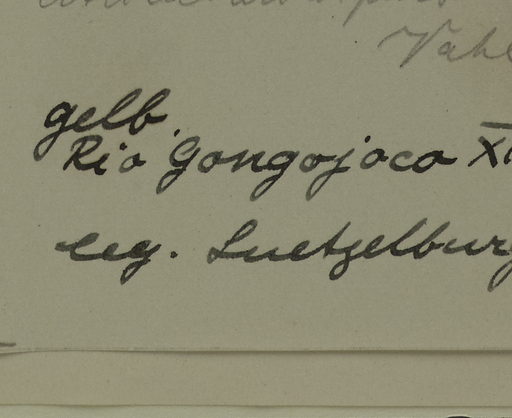 Vahl
gelb.
Rio Gongojoco XI
leg. Luetzelburg